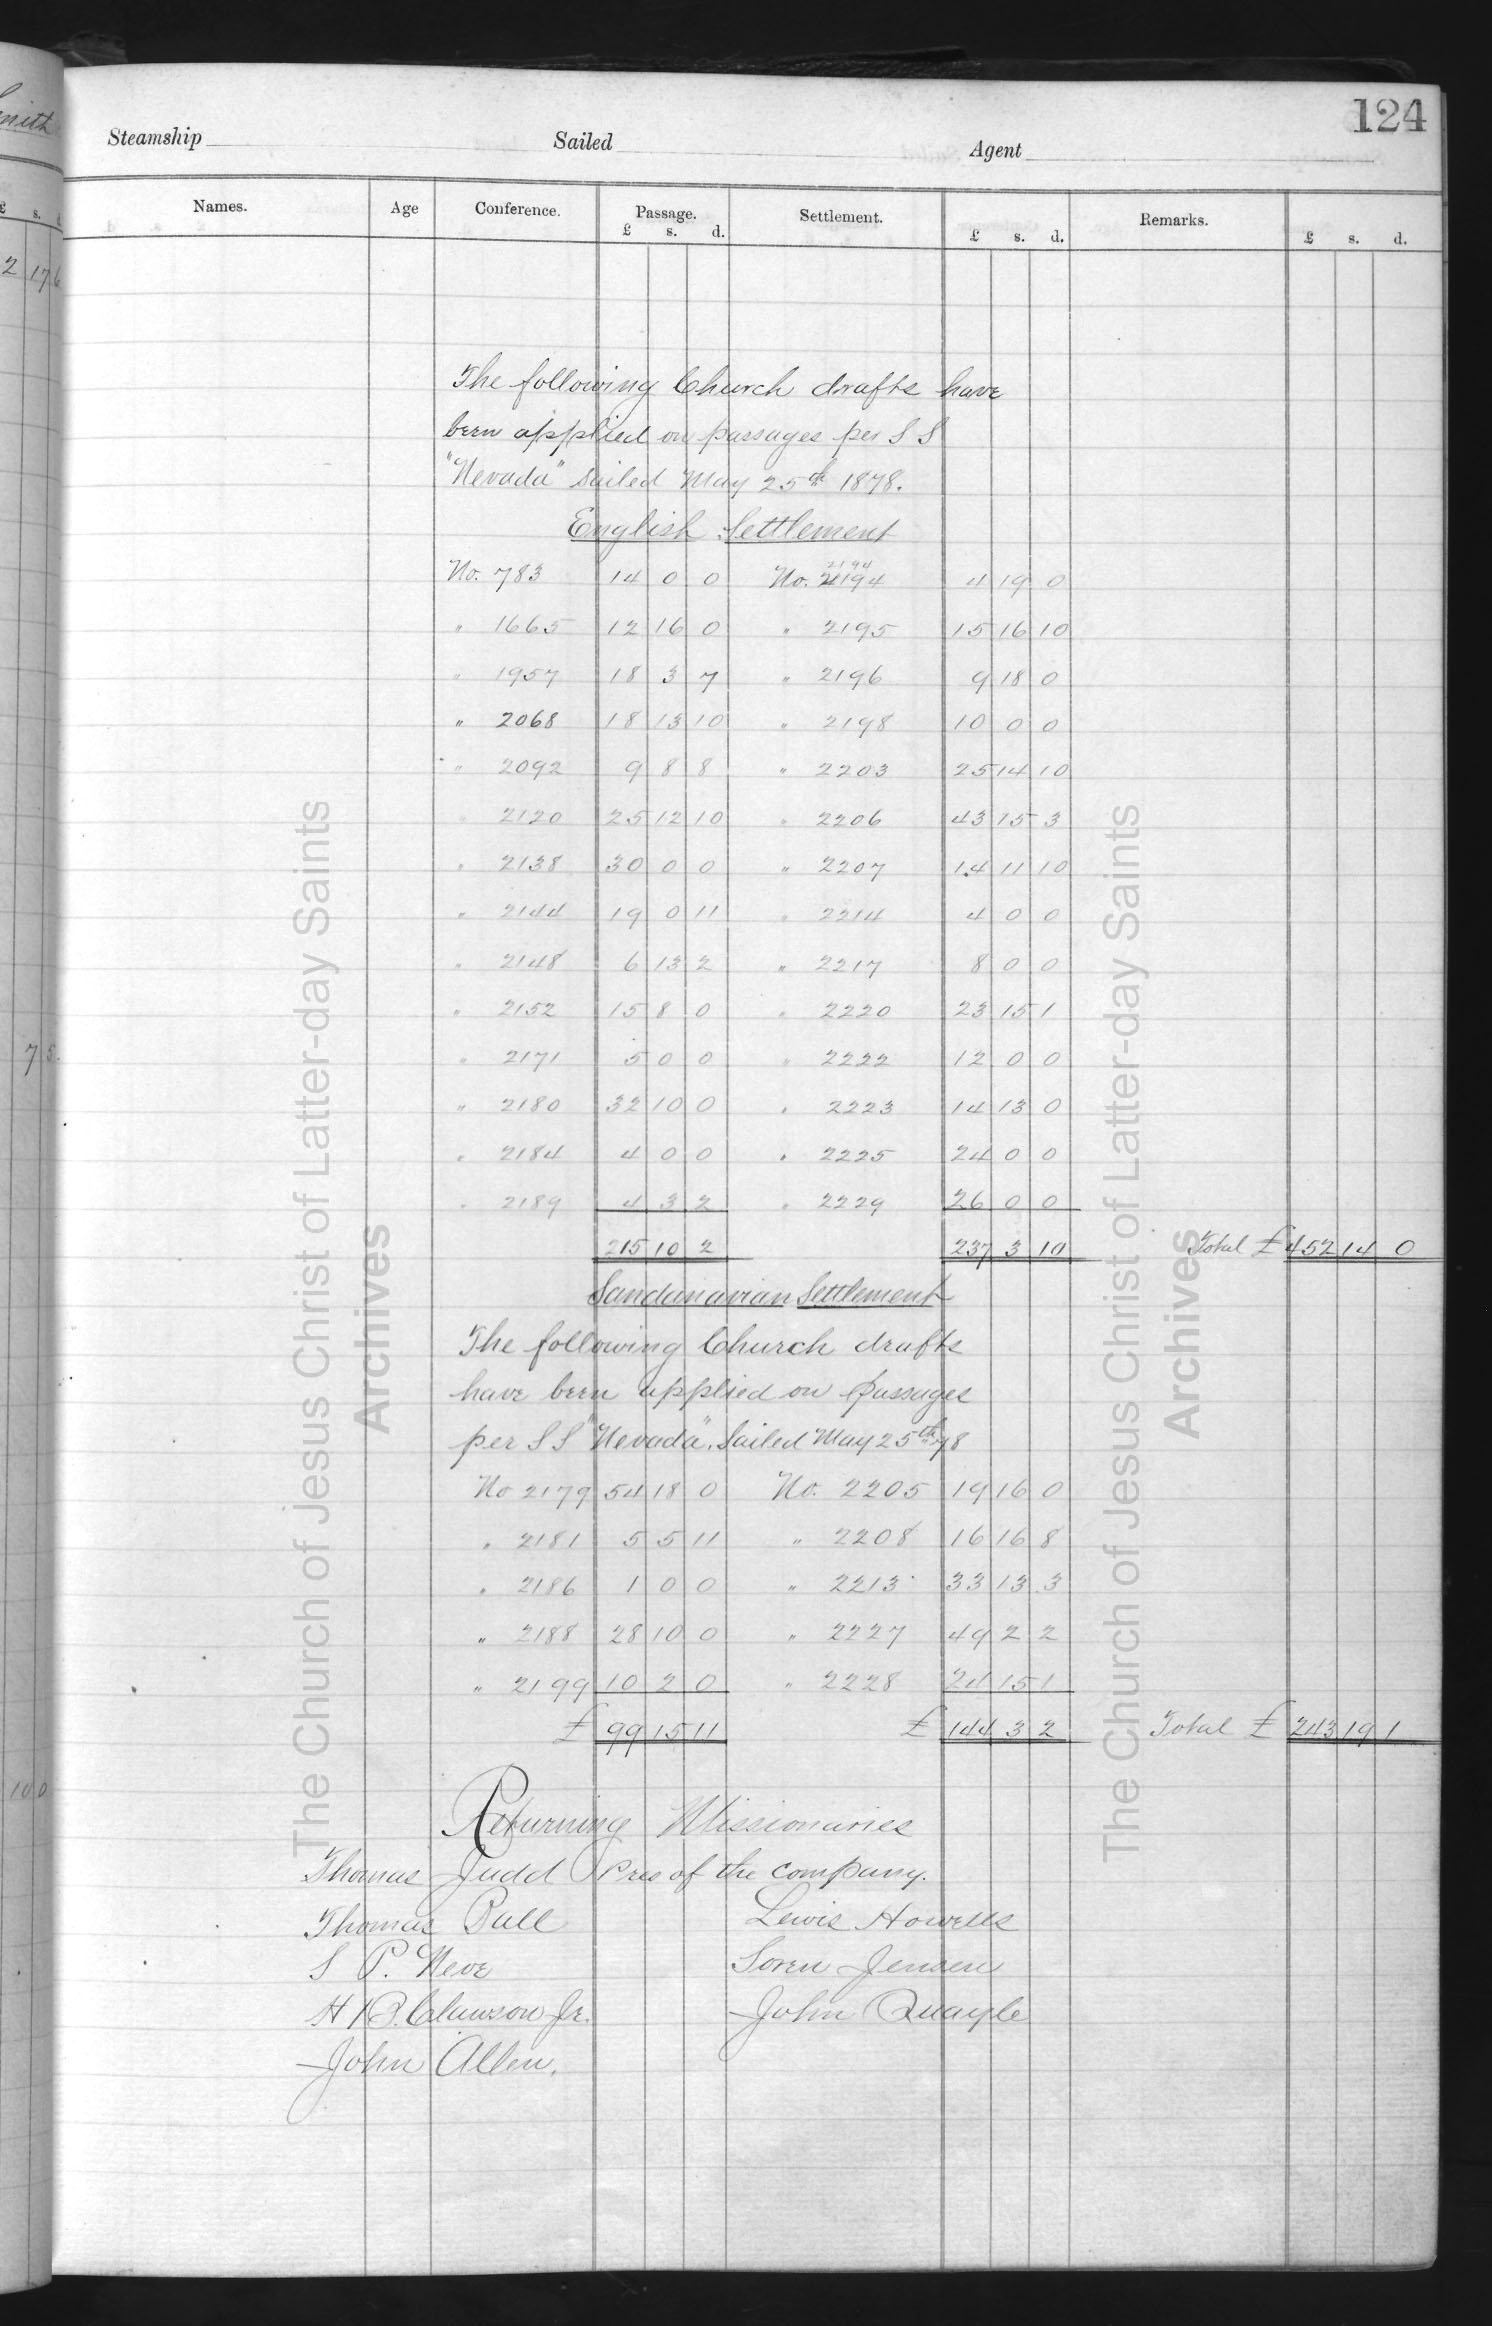 124
Steamship Sailed Agent
Names. Age Conference. Passage. Settlement. Remarks.
£ s. d. £ s. d. £ s. d.
The following Church drafts have
been applied on passages per S S
"Nevada" Sailed May 25th 1878.
English Settlement
2194
No. 783 14 0 0 No. 2194 4 19 0
" 1665 12 16 0 " 2195 15 16 10
" 1957 18 3 7 " 2196 9 18 0
" 2068 18 13 10 " 2198 10 0 0
" 2092 9 8 8 " 2203 25 14 10
" 2120 25 12 10 " 2206 43 15 3
" 2138 30 0 0 " 2207 14 11 10
" 2144 19 0 11 " 2214 4 0 0
" 2148 6 13 2 " 2217 8 0 0
" 2152 15 8 0 " 2220 23 15 1
" 2171 5 0 0 " 2222 12 0 0
" 2180 32 10 0 " 2223 14 13 0
" 2184 4 0 0 " 2225 24 0 0
" 2189 4 3 2 " 2229 26 0 0
215 10 2 237 3 10 Total £ 452 14 0
Sandanavian Settlement
The following Church drafts
have been applied on passages
per S S "Nevada". Sailed May 25th 78
No 2179 54 18 0 No. 2205 19 16 0
" 2181 5 5 11 " 2208 16 16 8
" 2186 1 0 0 " 2213 33 13 3
" 2188 28 10 0 " 2227 49 2 2
" 2199 10 2 0 " 2228 24 15 1
£ 99 15 11 £ 144 3 2 Total £ 243 19 1
Returning Missionaries
Thomas Judd Pres of the company.
Thomas Ball Lewis Howells
S P. Neve Soren Jensen
H B. Clawson Jr. John Quayle
John Allen.
The Church of Jesus Christ of Latter-day Saints
Archives
The Church of Jesus Christ of Latter-day Saints
Archives